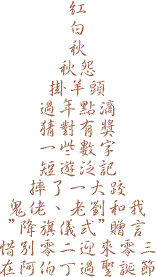 紅
白
秋
秋怨
掛羊頭
過年點滴
猜對有獎
一些數字
短遊泛記
摔了一大跤
鬼佬、老劉和我
”降旗儀式”贈言
惜別零二迎來零三
在阿伯丁過聖誕節